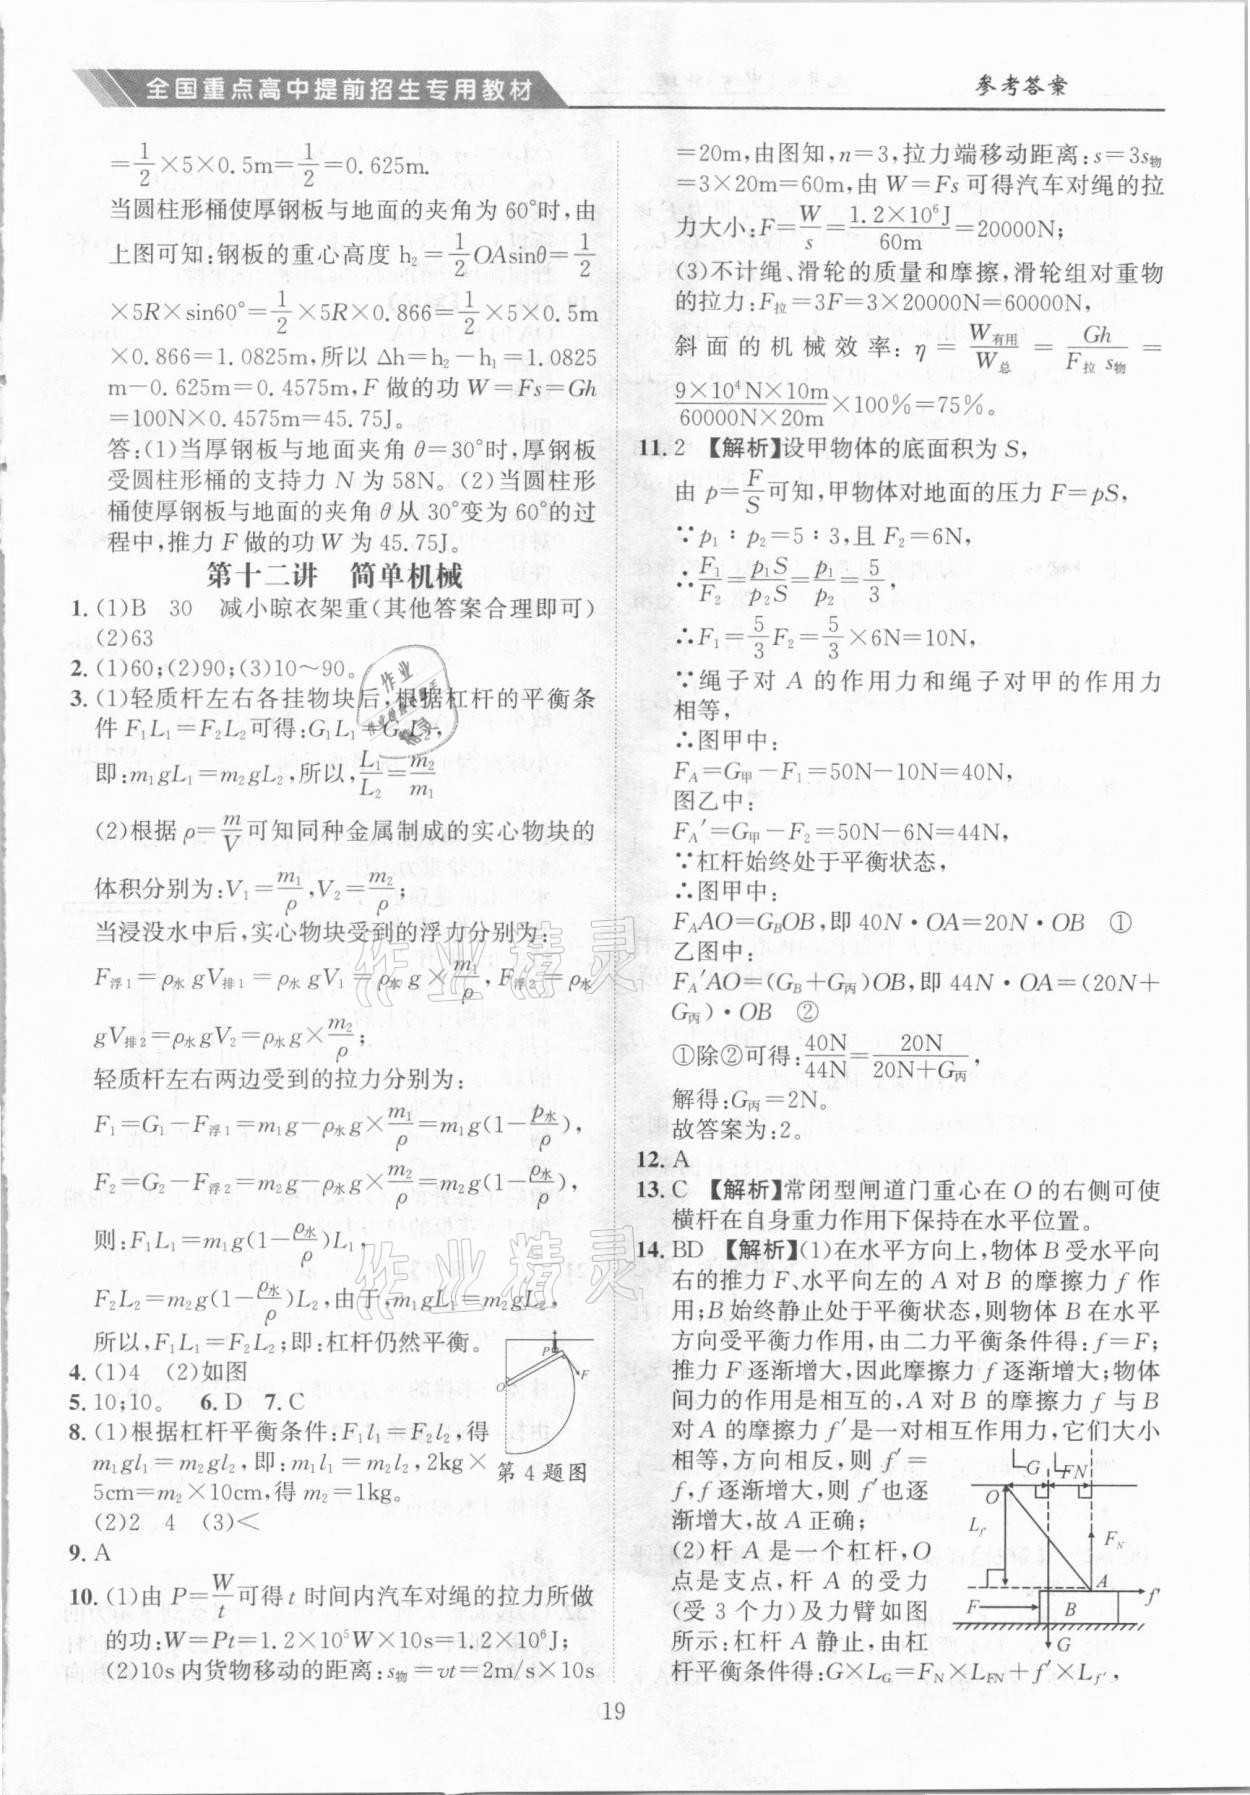 全国重点高中提前招生专用教材
参考答案
=1/2×5×0.5m=1/2=0.625m.
当圆柱形桶使厚钢板与地面的夹角为60°时,由
上图可知:钢板的重心高度h₂=1/2OAsinθ=1/2
×5R×sin60°=1/2×5R×0.866=1/2×5×0.5m
×0.866=1.0825m,所以Δh=h₂-h₁=1.0825
m-0.625m=0.4575m,F做的功W=Fs=Gh
=100N×0.4575m=45.75J。
答:(1)当厚钢板与地面夹角θ=30°时,厚钢板
受圆柱形桶的支持力N为58N。(2)当圆柱形
桶使厚钢板与地面的夹角θ从30°变为60°的过
程中,推力F做的功W为45.75J。
第十二讲 简单机械
1.(1)B 30 减小晾衣架重(其他答案合理即可)
(2)63
2.(1)60;(2)90;(3)10~90。
3.(1)轻质杆左右各挂物块后,根据杠杆的平衡条
件F₁L₁=F₂L₂可得:G₁L₁=G₂L₂,
即:m₁gL₁=m₂gL₂,所以,L₁/L₂=m₂/m₁
(2)根据ρ=m/V可知同种金属制成的实心物块的
体积分别为:V₁=m₁/ρ,V₂=m₂/ρ;
当浸没水中后,实心物块受到的浮力分别为:
F浮1=ρ水gV排1=ρ水gV₁=ρ水g×m₁/ρ,F浮2=ρ水
gV排2=ρ水gV₂=ρ水g×m₂/ρ;
轻质杆左右两边受到的拉力分别为:
F₁=G₁-F浮1=m₁g-ρ水g×m₁/ρ=m₁g(1-ρ水/ρ),
F₂=G₂-F浮2=m₂g-ρ水g×m₂/ρ=m₂g(1-ρ水/ρ),
则:F₁L₁=m₁g(1-ρ水/ρ)L₁,
F₂L₂=m₂g(1-ρ水/ρ)L₂,由于,m₁gL₁=m₂gL₂,
所以,F₁L₁=F₂L₂;即:杠杆仍然平衡。
4.(1)4 (2)如图
5.10;10。 6.D 7.C
8.(1)根据杠杆平衡条件:F₁l₁=F₂l₂,得
m₁gl₁=m₂gl₂,即:m₁l₁=m₂l₂,2kg×
5cm=m₂×10cm,得m₂=1kg。
(2)2 4 (3)<
P
O
F
第4题图
9.A
10.(1)由P=W/t可得t时间内汽车对绳的拉力所做
的功:W=Pt=1.2×10⁵W×10s=1.2×10⁶J;
(2)10s内货物移动的距离:s物=vt=2m/s×10s
=20m,由图知,n=3,拉力端移动距离:s=3s物
=3×20m=60m,由W=Fs可得汽车对绳的拉
力大小:F=W/s=1.2×10⁶J/60m=20000N;
(3)不计绳、滑轮的质量和摩擦,滑轮组对重物
的拉力:F拉=3F=3×20000N=60000N,
斜面的机械效率:η=W有用/W总=Gh/F拉s物=
9×10⁴N×10m/60000N×20m×100%=75%。
11.2 【解析】设甲物体的底面积为S,
由p=F/S可知,甲物体对地面的压力F=pS,
∵p₁∶p₂=5∶3,且F₂=6N,
∴F₁/F₂=p₁S/p₂S=p₁/p₂=5/3,
∴F₁=5/3F₂=5/3×6N=10N,
∵绳子对A的作用力和绳子对甲的作用力
相等,
∴图甲中:
F_A=G甲-F₁=50N-10N=40N,
图乙中:
F_A′=G甲-F₂=50N-6N=44N,
∵杠杆始终处于平衡状态,
∴图甲中:
F_AAO=G_BOB,即40N·OA=20N·OB ①
乙图中:
F_A′AO=(G_B+G丙)OB,即44N·OA=(20N+
G丙)·OB ②
①除②可得:40N/44N=20N/20N+G丙,
解得:G丙=2N。
故答案为:2。
12.A
13.C 【解析】常闭型闸道门重心在O的右侧可使
横杆在自身重力作用下保持在水平位置。
14.BD 【解析】(1)在水平方向上,物体B受水平向
右的推力F、水平向左的A对B的摩擦力f作
用;B始终静止处于平衡状态,则物体B在水平
方向受平衡力作用,由二力平衡条件得:f=F;
推力F逐渐增大,因此摩擦力f逐渐增大;物体
间力的作用是相互的,A对B的摩擦力f与B
对A的摩擦力f′是一对相互作用力,它们大小
相等,方向相反,则f′=
f,f逐渐增大,则f′也逐
渐增大,故A正确;
(2)杆A是一个杠杆,O
点是支点,杆A的受力
(受3个力)及力臂如图
所示:杠杆A静止,由杠
杆平衡条件得:G×L_G=F_N×L_FN+f′×L_f′,
L_G
L_FN
O
L_f
F_N
A
f′
F
B
G
19
作业精灵
作业精灵